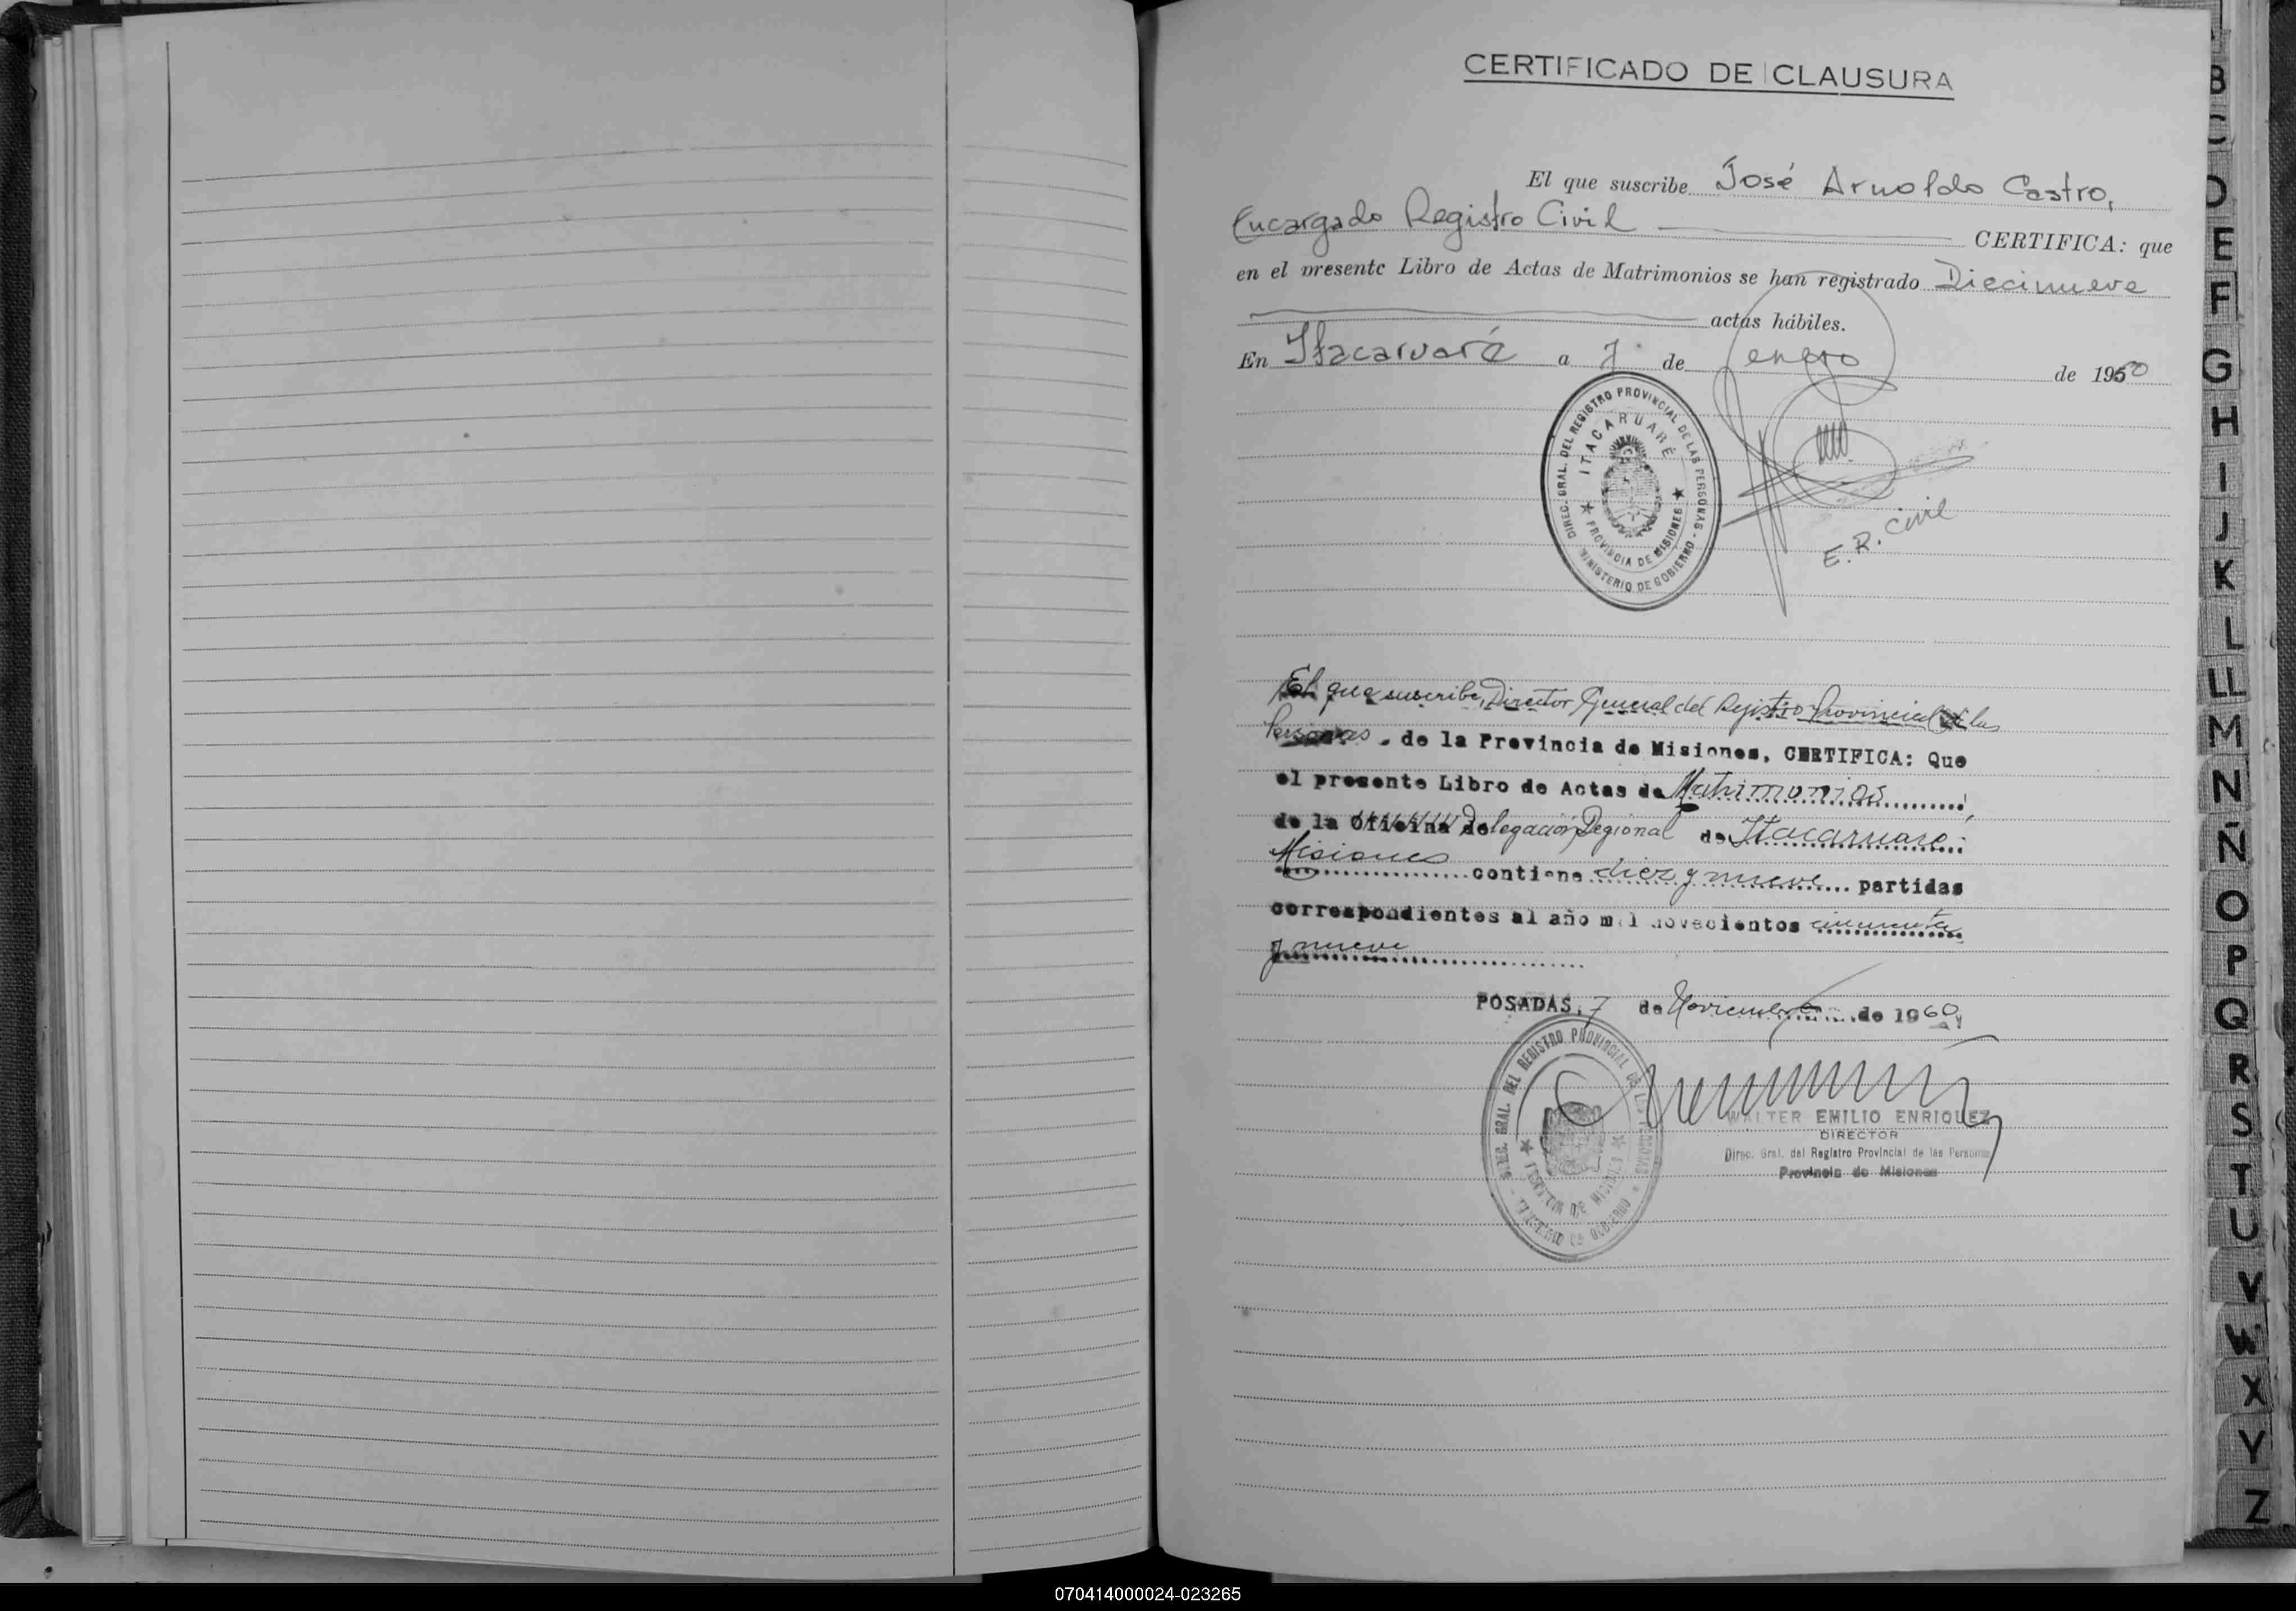 CERTIFICADO DE CLAUSURA
El que suscribe José Arnoldo Castro,
Encargado Registro Civil CERTIFICA: que
en el presente Libro de Actas de Matrimonios se han registrado Diecinueve
actas hábiles.
En Itacaruaré a 7 de enero de 1960
DIREC. GRAL. DEL REGISTRO PROVINCIAL DE LAS PERSONAS - MINISTERIO DE GOBIERNO -
ITACARUARÉ
PROVINCIA DE MISIONES
E. R. Civil
El que suscribe, Director General del Registro Provincial de las
Personas, de la Provincia de Misiones, CERTIFICA: Que
el presente Libro de Actas de Matrimonios
de la Oficina Delegación Regional de Itacaruaré-
Misiones contiene diez y nueve partidas
correspondientes al año mil novecientos cincuenta
y nueve
POSADAS, 7 de Noviembre de 1960
DIREC. GRAL. DEL REGISTRO PROVINCIAL DE LAS PERSONAS
WALTER EMILIO ENRIQUEZ
DIRECTOR
Direc. Gral. del Registro Provincial de las Personas
Provincia de Misiones
B
C
D
E
F
G
H
I
J
K
L
LL
M
N
Ñ
O
P
Q
R
S
T
U
V
W
X
Y
Z
070414000024-023265